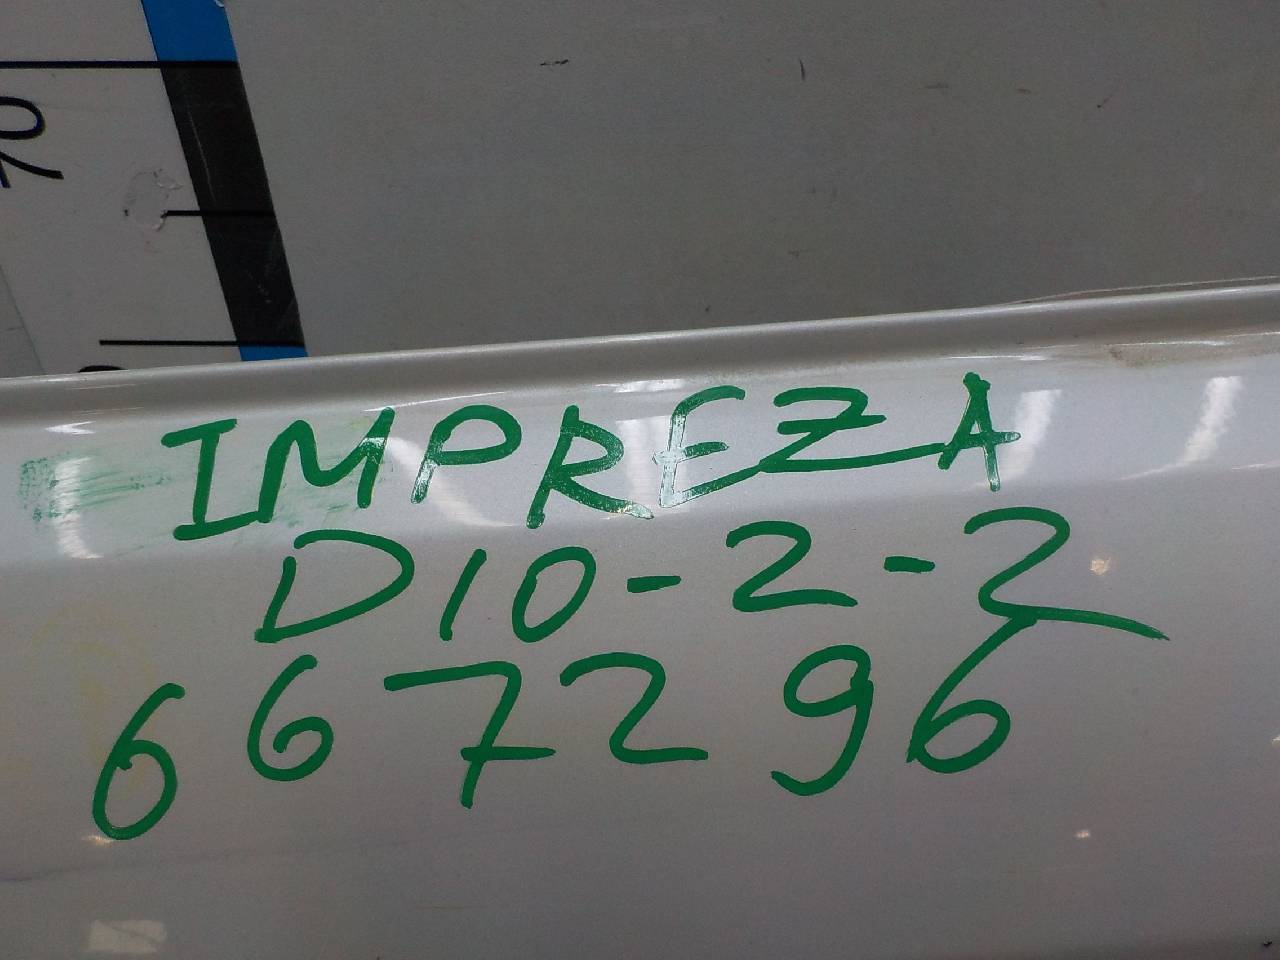 IMPREZA
D10-2-2
667296